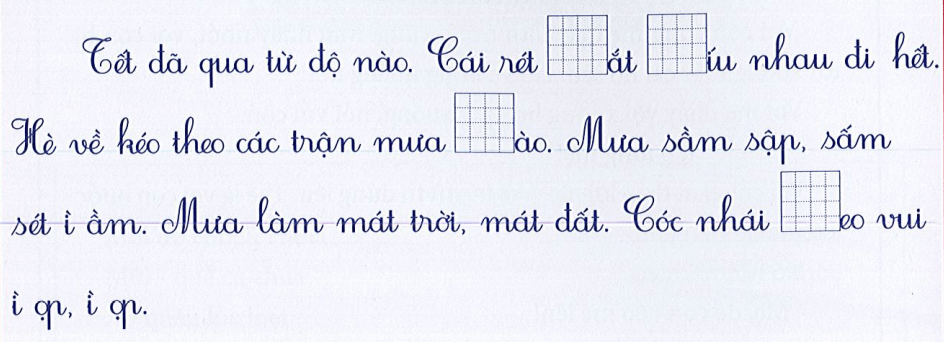 Tết đã qua từ độ nào. Cái rét ắt íu nhau đi hết.
Hè về kéo theo các trận mưa ào. Mưa sầm sập, sấm
sét ì ầm. Mưa làm mát trời, mát đất. Cóc nhái eo vui
ì ọp, ì ọp.